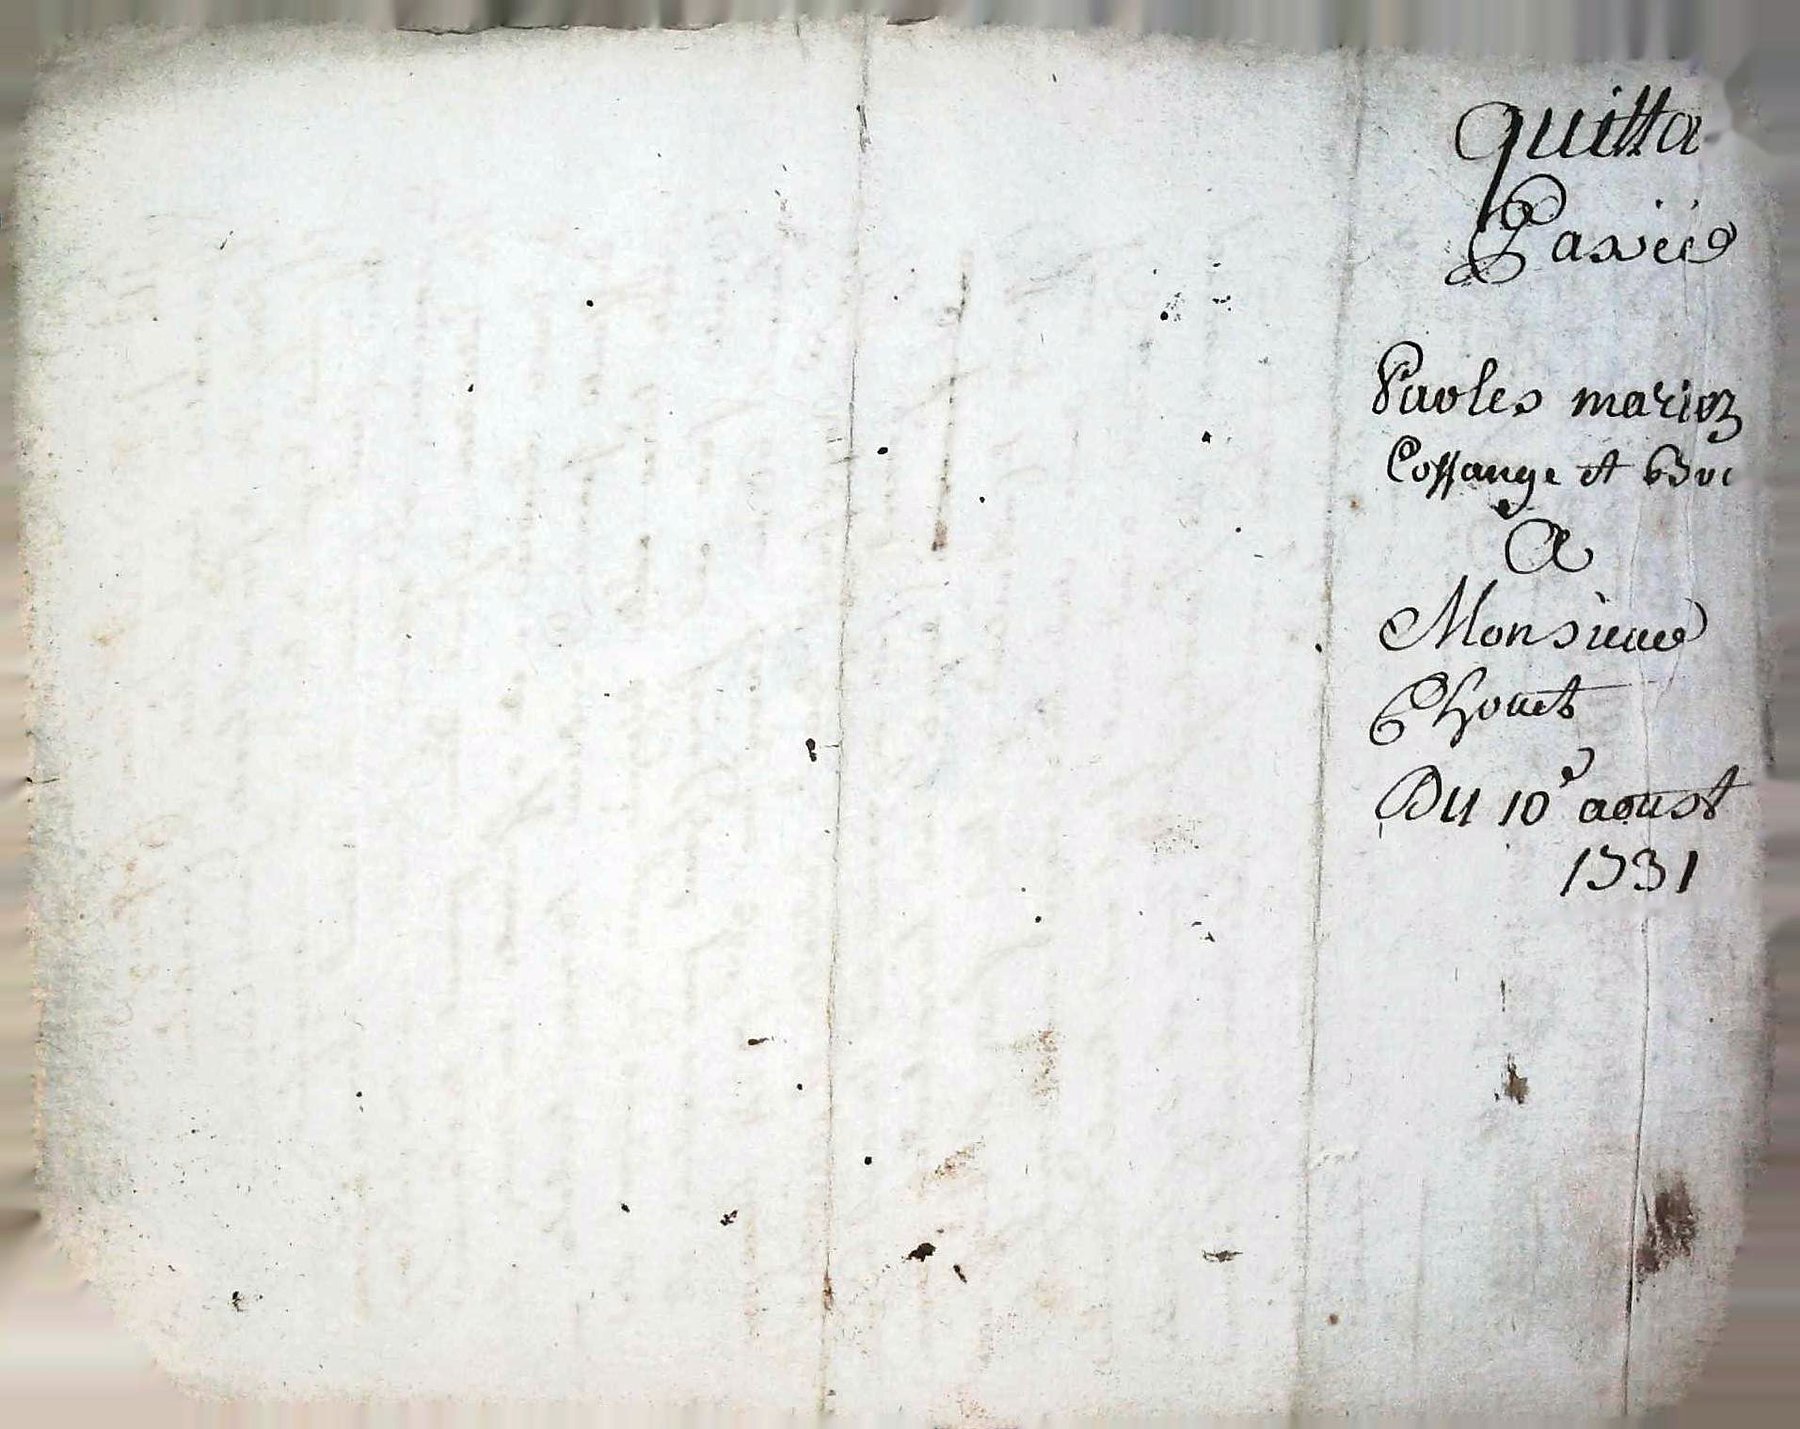 quitta
Passée
Par les mariez
Cossange et Boi
A
Monsieur
Chouet
Du 10e aoust
1731